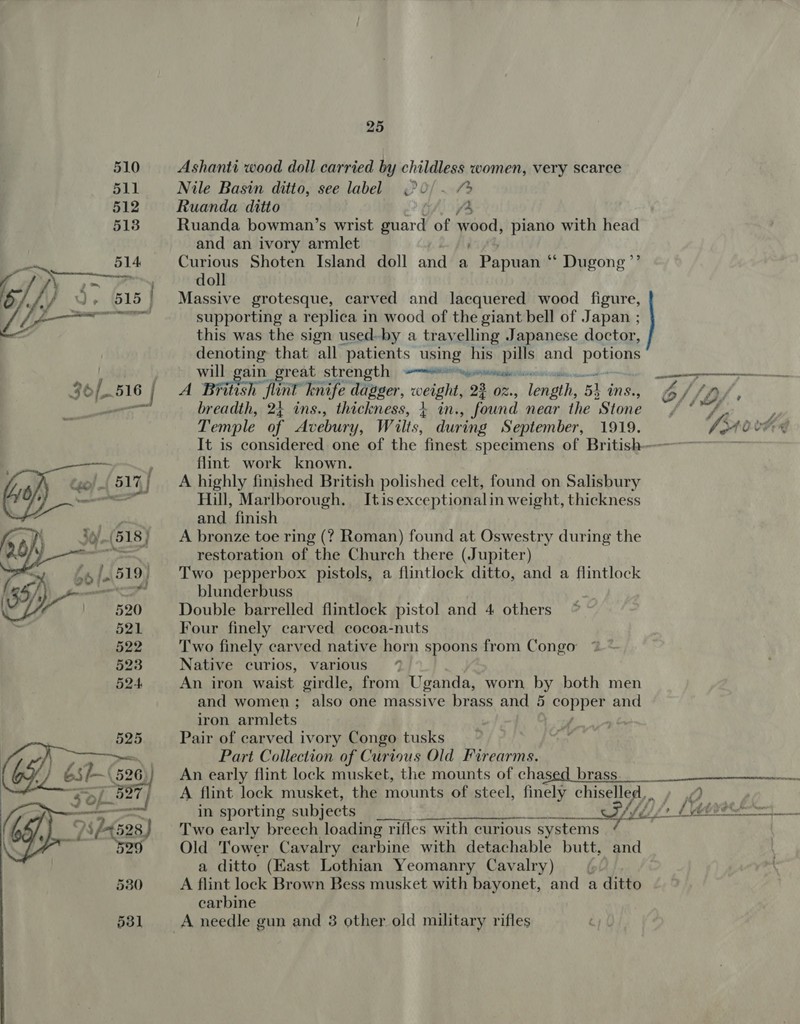 25
510 Ashanti wood doll carried by childless women, very scarce
511 Nile Basin ditto, see label
512 Ruanda ditto
513 Ruanda bowman's wrist guard of wood, piano with head
and an ivory armlet
514 Curious Shoten Island doll and a Papuan “ Dugong ”
doll
515 Massive grotesque, carved and lacquered wood figure,
supporting a replica in wood of the giant bell of Japan ;
this was the sign used by a travelling Japanese doctor,
denoting that all patients using his pills and potions
will gain great strength
30/- 516 A British flint knife dagger, weight, 2¾ oz., length, 5½ ins.,
breadth, 2¼ ins., thickness, ¼ in., found near the Stone
Temple of Avebury, Wilts, during September, 1919.
It is considered one of the finest specimens of British
flint work known.
517 A highly finished British polished celt, found on Salisbury
Hill, Marlborough. It is exceptional in weight, thickness
and finish
30/- 518 A bronze toe ring (? Roman) found at Oswestry during the
restoration of the Church there (Jupiter)
519 Two pepperbox pistols, a flintlock ditto, and a flintlock
blunderbuss
520 Double barrelled flintlock pistol and 4 others
521 Four finely carved cocoa-nuts
522 Two finely carved native horn spoons from Congo
523 Native curios, various
524 An iron waist girdle, from Uganda, worn by both men
and women ; also one massive brass and 5 copper and
iron armlets
525 Pair of carved ivory Congo tusks
Part Collection of Curious Old Firearms.
65/- 526 An early flint lock musket, the mounts of chased brass
527 A flint lock musket, the mounts of steel, finely chiselled
in sporting subjects
528 Two early breech loading rifles with curious systems
529 Old Tower Cavalry carbine with detachable butt, and
a ditto (East Lothian Yeomanry Cavalry)
530 A flint lock Brown Bess musket with bayonet, and a ditto
carbine
531 A needle gun and 3 other old military rifles